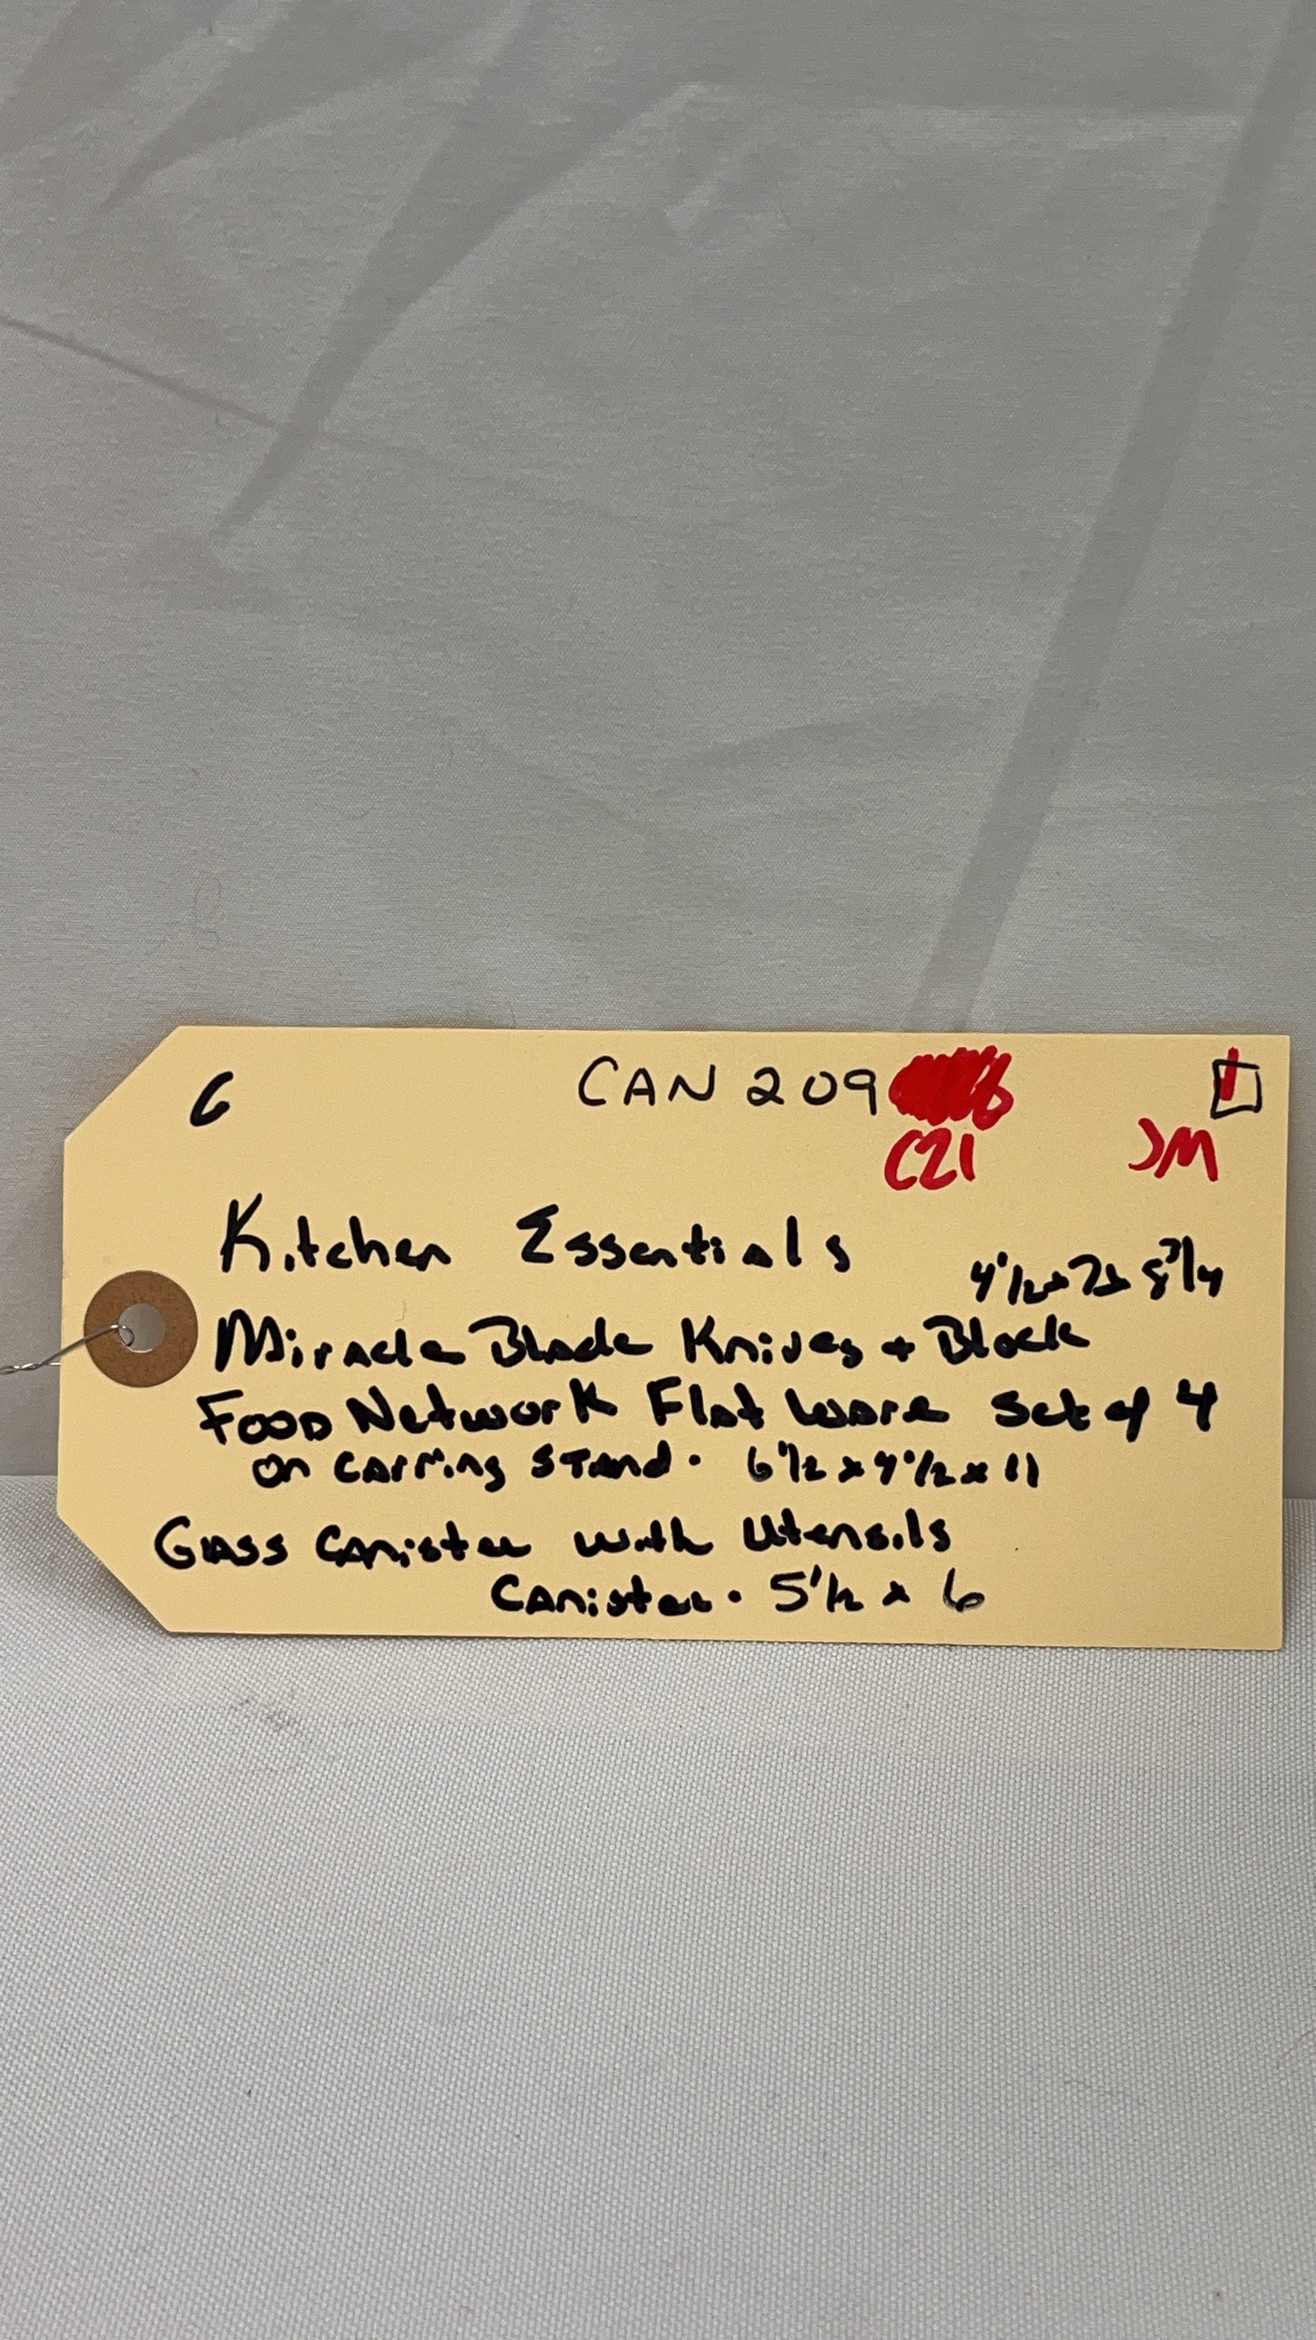 6 CAN 209
C21 JM
Kitchen Essentials
4 1/2 x 7 x 8 3/4
Miracle Blade Knives + Block
Food Network Flat Ware Set of 4
on carring stand. 6 1/2 x 4 1/2 x 11
Glass Canister with Utensils
Canister. 5 1/2 x 6